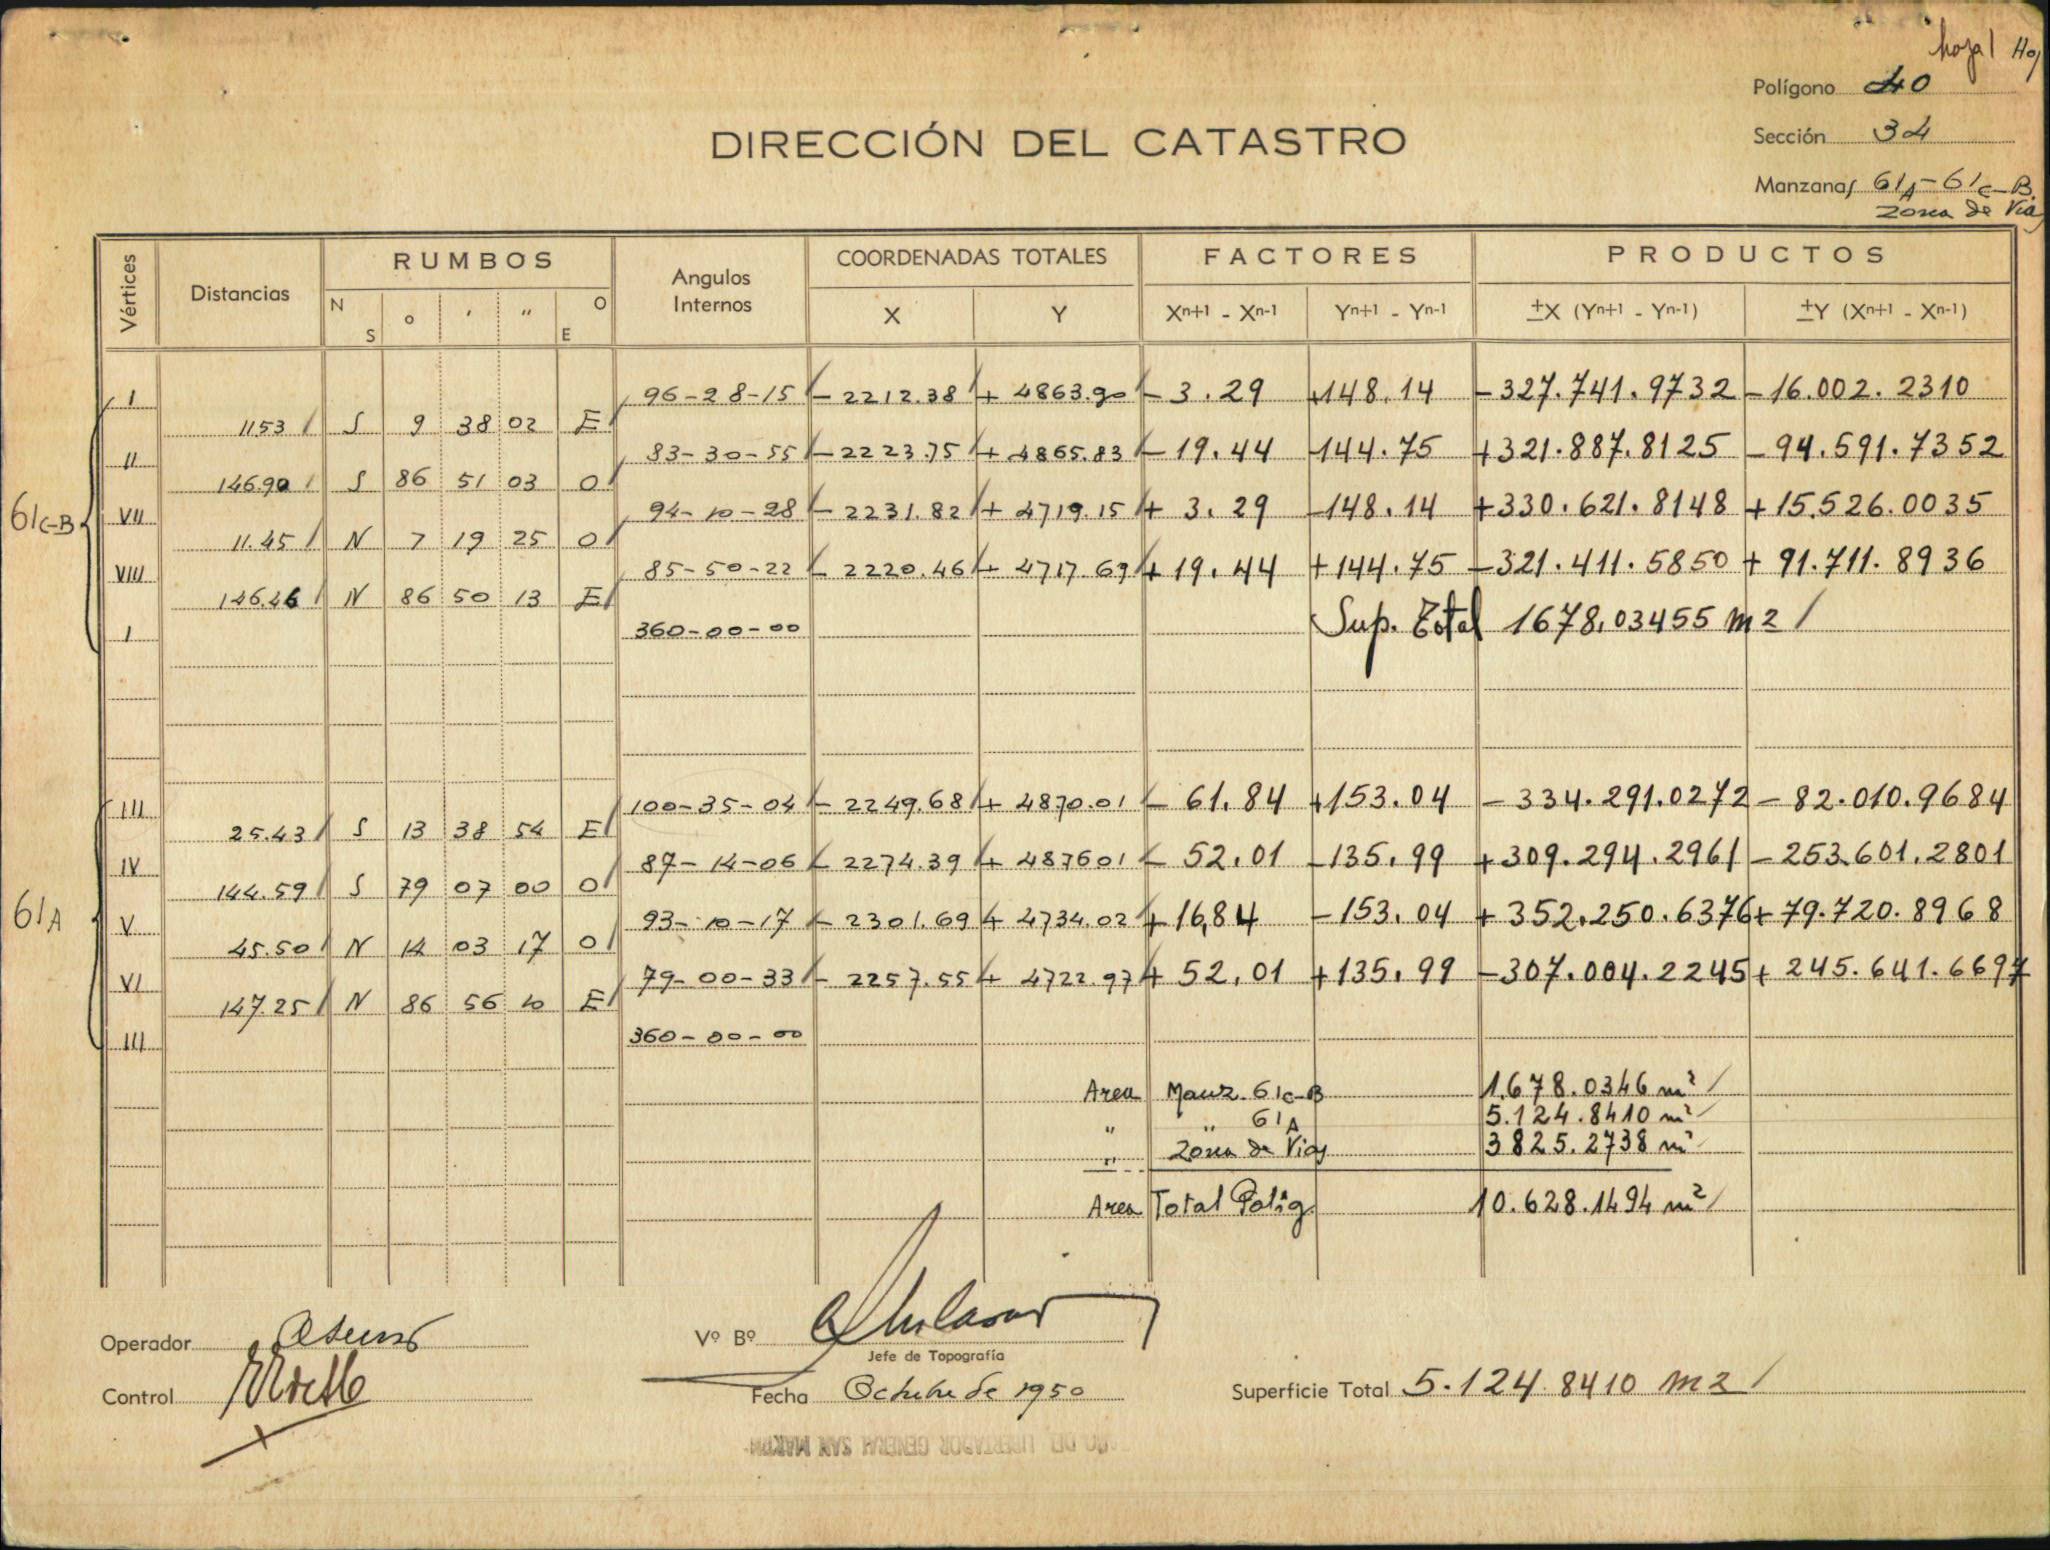 hoja 1
Polígono 40
DIRECCIÓN DEL CATASTRO
Sección 34
Manzanas 61A-61C-B.
Zona de Vía
Vértices Distancias RUMBOS Angulos Internos COORDENADAS TOTALES FACTORES PRODUCTOS
N S o ' " O E X Y Xn+1 - Xn-1 Yn+1 - Yn-1 ±X (Yn+1 - Yn-1) ±Y (Xn+1 - Xn-1)
61C-B
I 96-28-15 - 2212.38 + 4863.90 - 3.29 +148.14 -327.741.9732 -16.002.2310
11.53 S 9 38 02 E
II 83-30-55 -2223.75 + 4865.83 - 19.44 -144.75 +321.887.8125 -94.591.7352
146.90 S 86 51 03 O
VII 94-10-28 - 2231.82 + 4719.15 + 3.29 -148.14 +330.621.8148 +15.526.0035
11.45 N 7 19 25 O
VIII 85-50-22 - 2220.46 + 4717.69 + 19.44 +144.75 -321.411.5850 + 91.711.8936
146.46 N 86 50 13 E
I 360-00-00 Sup. Total 1678,03455 m2
61A
III 100-35-04 - 2249.68 + 4870.01 - 61.84 +153.04 -334.291.0272 - 82.010.9684
25.43 S 13 38 54 E
IV 87-14-06 - 2274.39 + 487601 - 52.01 -135.99 +309.294.2961 -253.601.2801
144.59 S 79 07 00 O
V 93-10-17 - 2301.69 + 4734.02 +16,84 -153.04 +352.250.6376 +79.720.8968
45.50 N 14 03 17 O
VI 79-00-33 - 2257.55 + 4722.97 + 52.01 +135.99 -307.004.2245 + 245.641.6697
147.25 N 86 56 10 E
III 360-00-00
Area Manz. 61C-B 1.678.0346 m²
" " 61A 5.124.8410 m²
" Zona de Vías 3825.2738 m²
Area Total Polig. 10.628.1494 m²
Operador
Vº Bº
Jefe de Topografía
Control
Fecha Octubre de 1950
Superficie Total 5.124.8410 m2
AÑO DEL LIBERTADOR GENERAL SAN MARTIN